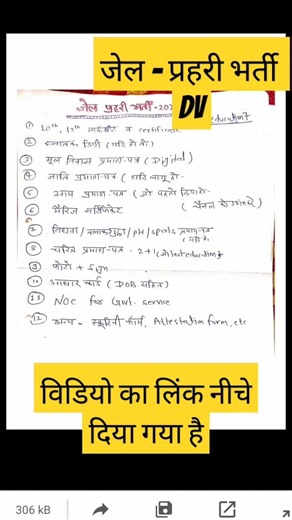 जेल - प्रहरी भर्ती
DV
जेल प्रहरी भर्ती - 202
① 10th, 12th मार्कशीट व certificate
② स्नातक डिग्री (यदि हो तो)
③ मूल निवास प्रमाण-पत्र (Digital)
④ जाति प्रमाण-पत्र (यदि लागू हो
⑤ प्रमाण-पत्र (जो पहले
⑥ मैरिज सर्टिफिकेट
⑦ विधवा/तलाकशुदा/PH/sports प्रमाण-पत्र
⑧ चरित्र प्रमाण-पत्र - 2+1 (
⑨ फोटो + Sign
⑩ आधार कार्ड (DOB सहित)
⑪ NOC for Govt. service
⑫ अन्य - फॉर्म, Attestation form, etc
विडियो का लिंक नीचे
दिया गया है
306 kB